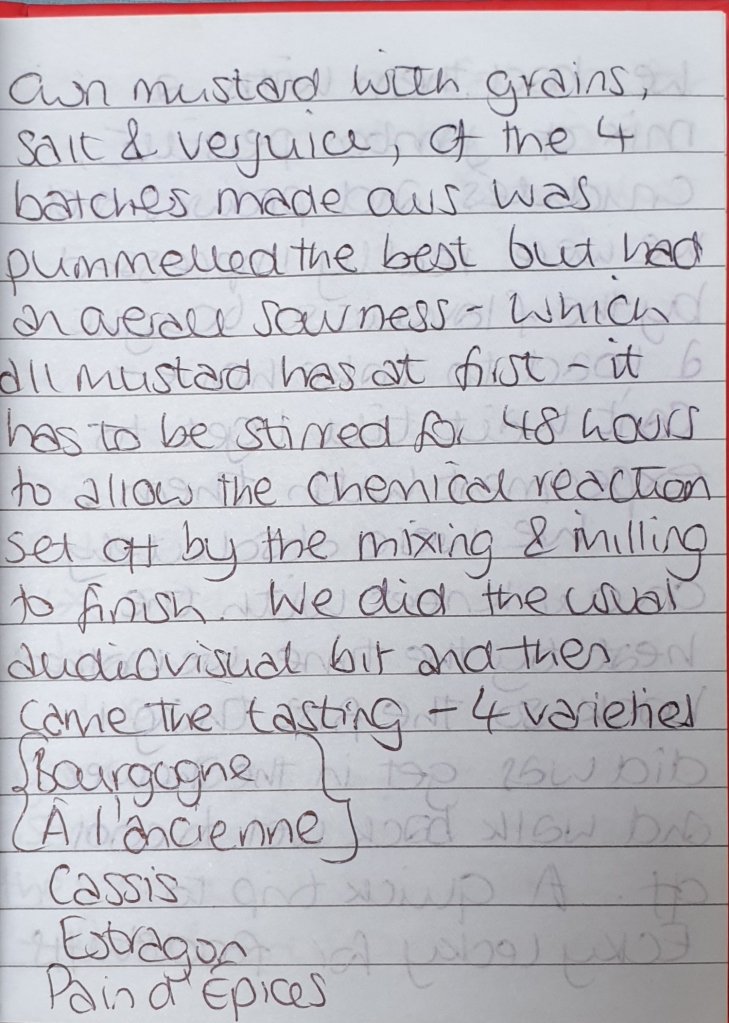 own mustard with grains,
salt & verjuice, of the 4
batches made ours was
pummelled the best but had
an overall sourness - which
all mustard has at first - it
has to be stirred for 48 hours
to allow the chemical reaction
set off by the mixing & milling
to finish. We did the usual
audiovisual bit and then
came the tasting - 4 varieties
{Bourgogne}
{À l'ancienne}
Cassis
Estragon
Pain d'Épices